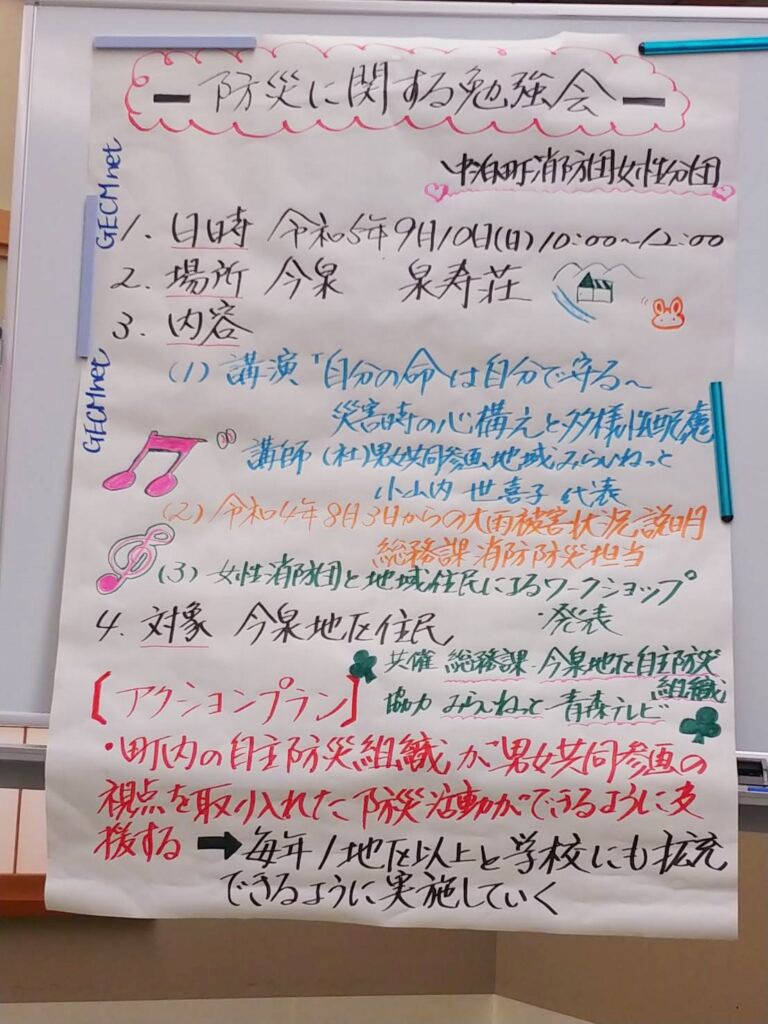 ー防災に関する勉強会ー
中泊町消防団女性分団
GECMnet
1. 日時 令和5年9月10日(日)10:00~12:00
2. 場所 今泉 泉寿荘
3. 内容
GECMnet
(1) 講演「自分の命は自分で守る~
災害時の心構えと多様性配慮
講師 (社)男女共同参画地域みらいねっと
小山内 世喜子 代表
(2) 令和4年8月3日からの大雨被害状況説明
総務課 消防防災担当
(3) 女性消防団と地域住民によるワークショップ
・発表
4. 対象 今泉地区住民
共催 総務課・今泉地区自主防災
組織
協力 みらいねっと 青森テレビ
[アクションプラン]
・町内の自主防災組織が男女共同参画の
視点を取り入れた防災活動ができるように支
援する ➡毎年1地区以上と学校にも拡充
できるように実施していく